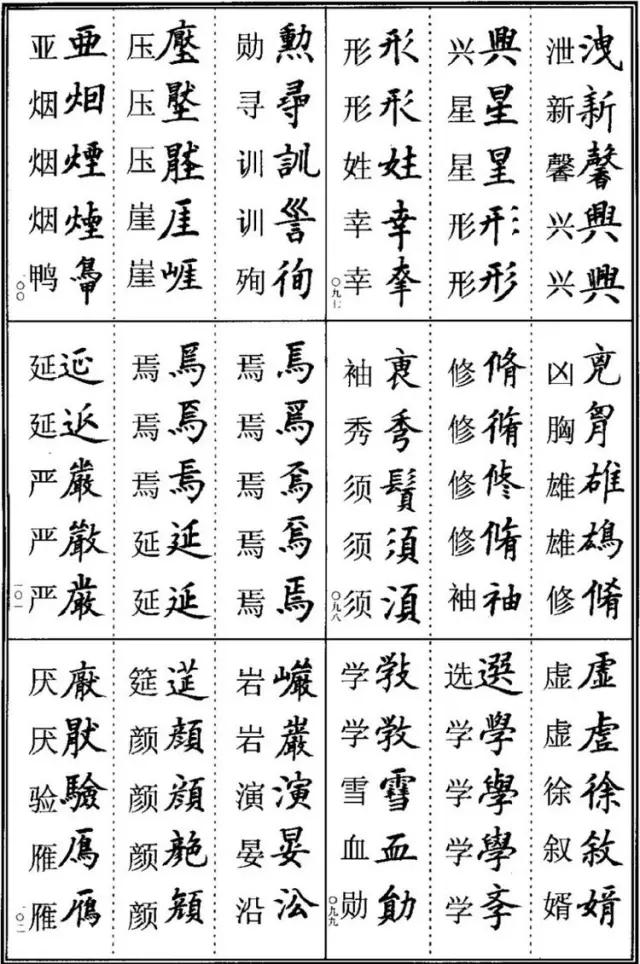 泄 洩
新 新
馨 馨
兴 興
兴 興
兴 興
星 星
星 星
形 形
形 形
形 形
形 形
姓 姓
幸 幸
幸
〇九七
凶
胸 胷
雄 雄
雄 鴆
修 脩
修 脩
修 脩
修 修
修 脩
袖 袖
袖 褏
秀 秀
须 鬚
须 須
须 湏
〇九八
虚 虚
虚 虗
徐 徐
叙 敘
婿 婿
选 選
学 學
学 學
学 學
学 斈
学 斆
学 教
雪 雪
血 血
勋 勛
〇九九
勋 勲
寻 尋
训 訓
训
殉 徇
压 壓
压
压
崖 厓
崖 崕
亚 亜
烟 烟
烟 煙
烟 煙
鸭
一〇〇
焉 焉
焉 焉
焉 焉
焉 焉
焉 焉
焉 焉
焉 焉
焉 焉
延 延
延 延
延 延
延
严 嚴
严 嚴
严 嚴
一〇一
岩 巗
岩 巖
演 演
晏 晏
沿 㳂
筵 筵
颜 顔
颜 顔
颜
颜 顔
厌 厭
厌 猒
验 驗
雁 鴈
雁 鴈
一〇二